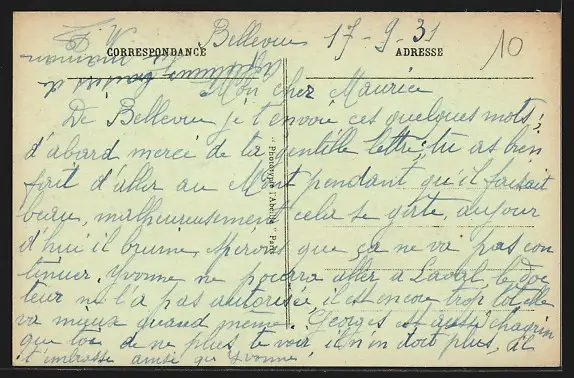 Bellevue 17-9-31
10
CORRESPONDANCE
ADRESSE
Mon cher Maurice
De Bellevue je t'envoie ces quelques mots;
d'abord merci de ta gentille lettre; tu as bien
fait d'aller au Mont pendant qu'il faisait
beau, malheureusement cela se gâte, aujour
d'hui il bruine, espérons que ça ne va pas con
tinuer. Yvonne ne pourra aller à Laval, le doc
teur ne l'a pas autorisée, il est encore trop tôt, elle
va mieux quand même. Georges est aussi chagrin
que toi de ne plus te voir il n'en doit plus, il
t'embrasse ainsi qu' Yvonne.
" Phototypie l'Abeille " Paris